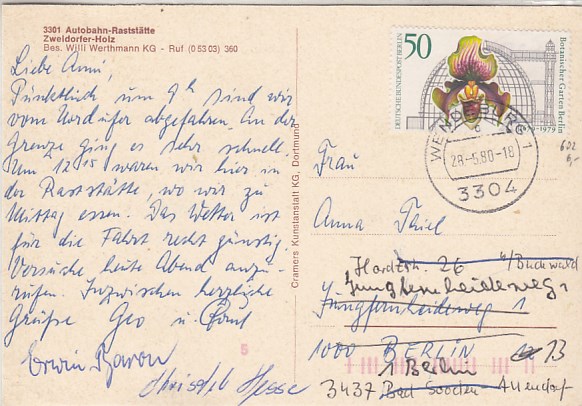 3301 Autobahn-Raststätte
Zweidorfer-Holz
Bes. Willi Werthmann KG - Ruf (0 53 03) 360
Liebe Anni,
Pünktlich um 9h sind wir
vom Nordufer abgefahren. An der
Grenze ging es sehr schnell.
Um 12 15 waren wir hier in
der Raststätte, wo wir zu
Mittag essen. Das Wetter ist
für die Fahrt recht günstig.
Versuche heute Abend anzu-
rufen. Inzwischen herzliche
Grüße Geo u.
Erwin Baron
Christoph Hesse
Cramers Kunstanstalt KG, Dortmund
5
50
DEUTSCHE BUNDESPOST BERLIN
Botanischer Garten Berlin
1979
WENDEBURG 1
28.-5.80-18
3304
602
6,-
Frau
Anna Thiel
Hardtstr. 26
Jungfernheideweg 1
Jungfernheideweg 1
1000 BERLIN 13
1 Berlin
3437 Bad Sooden-Allendorf